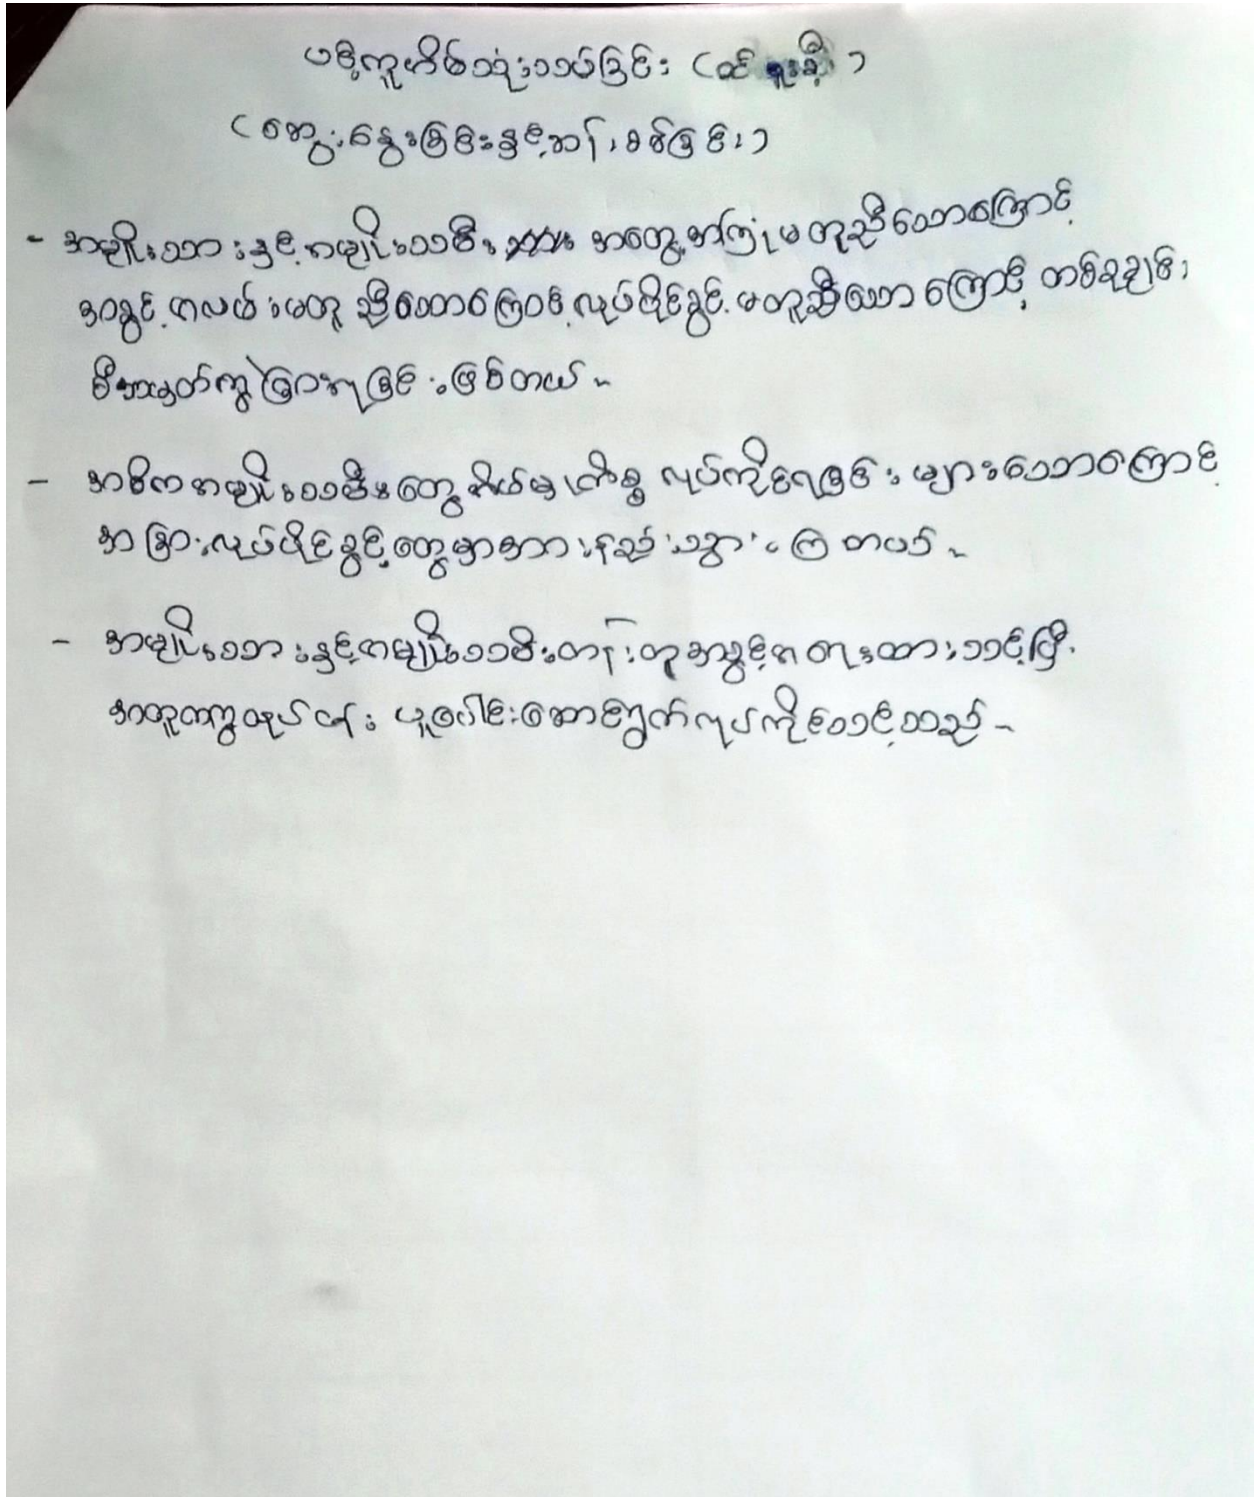 ပစ္စည်းသုံးသပ်ခြင်း (ဝင်
(ဆွေးနွေးခြင်းနှင့်ဆန်းစစ်ခြင်း)
- အမျိုးသားနှင့်အမျိုးသမီး အတွေ့အကြုံမတူညီသောကြောင့်
အခွင့်အလမ်းမတူညီသောကြောင့်လုပ်ပိုင်ခွင့်မတူညီသောကြောင့် တစ်ခုချင်း
စီအချက်ကွဲပြားရခြင်းဖြစ်တယ်။
- အဓိကအမျိုးသမီးတွေအိမ်မှုကိစ္စ လုပ်ကိုင်ရခြင်းများသောကြောင့်
အခြားလုပ်ပိုင်ခွင့်တွေမှာအားနည်းသွားကြတယ်။
- အမျိုးသားနှင့်အမျိုးသမီးတန်းတူအခွင့်အရေးထားသင့်ပြီး
အတူတကွလုပ်ငန်း ပူးပေါင်းဆောင်ရွက်လုပ်ကိုင်သင့်သည်။